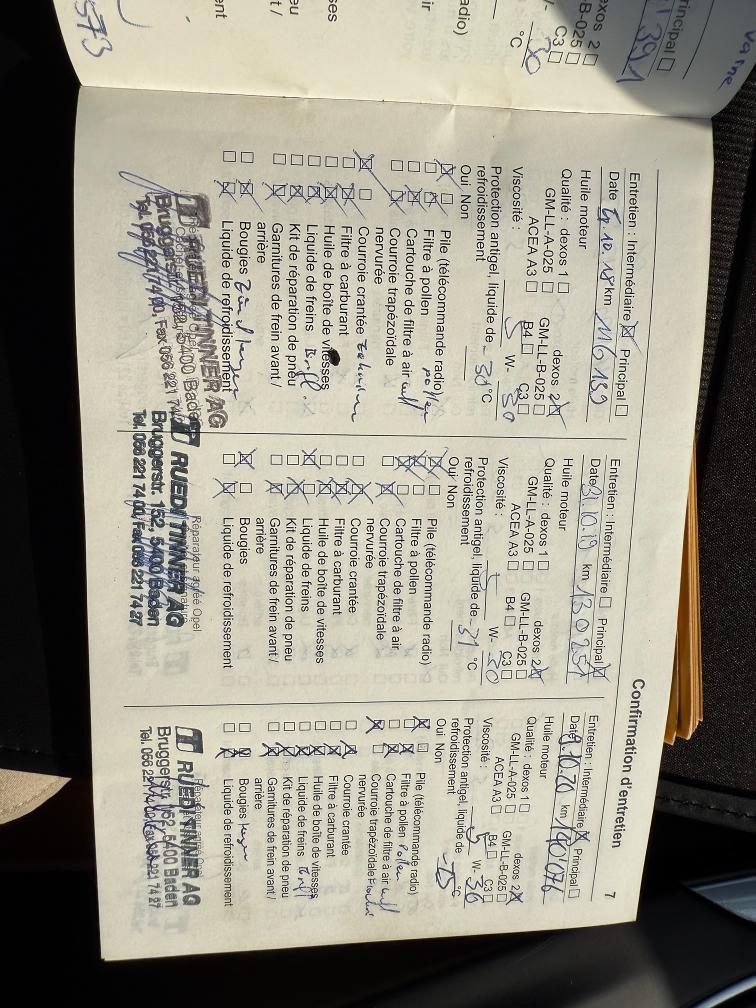 Confirmation d'entretien
7
Entretien : Intermédiaire ☒ Principal ☐
Date 4.10.18 km 116 139
Huile moteur
Qualité : dexos 1 ☐ dexos 2 ☒
GM-LL-A-025 ☐ GM-LL-B-025 ☐
ACEA A3 ☐ B4 ☐ C3 ☐
Viscosité : 5 W- 30
Protection antigel, liquide de refroidissement - 31 °C
Oui Non
Pile (télécommande radio)
Filtre à pollen
Cartouche de filtre à air
Courroie trapézoïdale
nervurée
Courroie crantée
Filtre à carburant
Huile de boîte de vitesses
Liquide de freins
Kit de réparation de pneu
Garnitures de frein avant /
arrière
Bougies
Liquide de refroidissement
RUEDI TINNER AG
Bruggerstr. 152, 5400 Baden
Tel. 056 221 74 00, Fax 056 221 74
Entretien : Intermédiaire ☐ Principal ☒
Date 31.10.19 km 130 257
Huile moteur
Qualité : dexos 1 ☐ dexos 2 ☒
GM-LL-A-025 ☐ GM-LL-B-025 ☐
ACEA A3 ☐ B4 ☐ C3 ☐
Viscosité : 5 W- 30
Protection antigel, liquide de
refroidissement - 31 °C
Oui Non
Pile (télécommande radio)
Filtre à pollen
Cartouche de filtre à air
Courroie trapézoïdale
nervurée
Courroie crantée
Filtre à carburant
Huile de boîte de vitesses
Liquide de freins
Kit de réparation de pneu
Garnitures de frein avant /
arrière
Bougies
Liquide de refroidissement
Réparateur agréé Opel
RUEDI TINNER AG
Bruggerstr. 152, 5400 Baden
Tel. 056 221 74 00, Fax 056 221 74 27
Entretien : Intermédiaire ☒ Principal ☐
Date 9.10.20 km 140'076
Huile moteur
Qualité : dexos 1 ☐ dexos 2 ☒
GM-LL-A-025 ☐ GM-LL-B-025 ☐
ACEA A3 ☐ B4 ☐ C3 ☐
Viscosité : 5 W- 30
Protection antigel, liquide de
refroidissement -25 °C
Oui Non
Pile (télécommande radio)
Filtre à pollen Pollen
Cartouche de filtre à air
Courroie trapézoïdale
nervurée
Courroie crantée
Filtre à carburant
Huile de boîte de vitesses
Liquide de freins
Kit de réparation de pneu
Garnitures de frein avant /
arrière
Bougies
Liquide de refroidissement
RUEDI TINNER AG
Bruggerstr. 152, 5400 Baden
Tel. 056 221 74 00, Fax 056 221 74 27